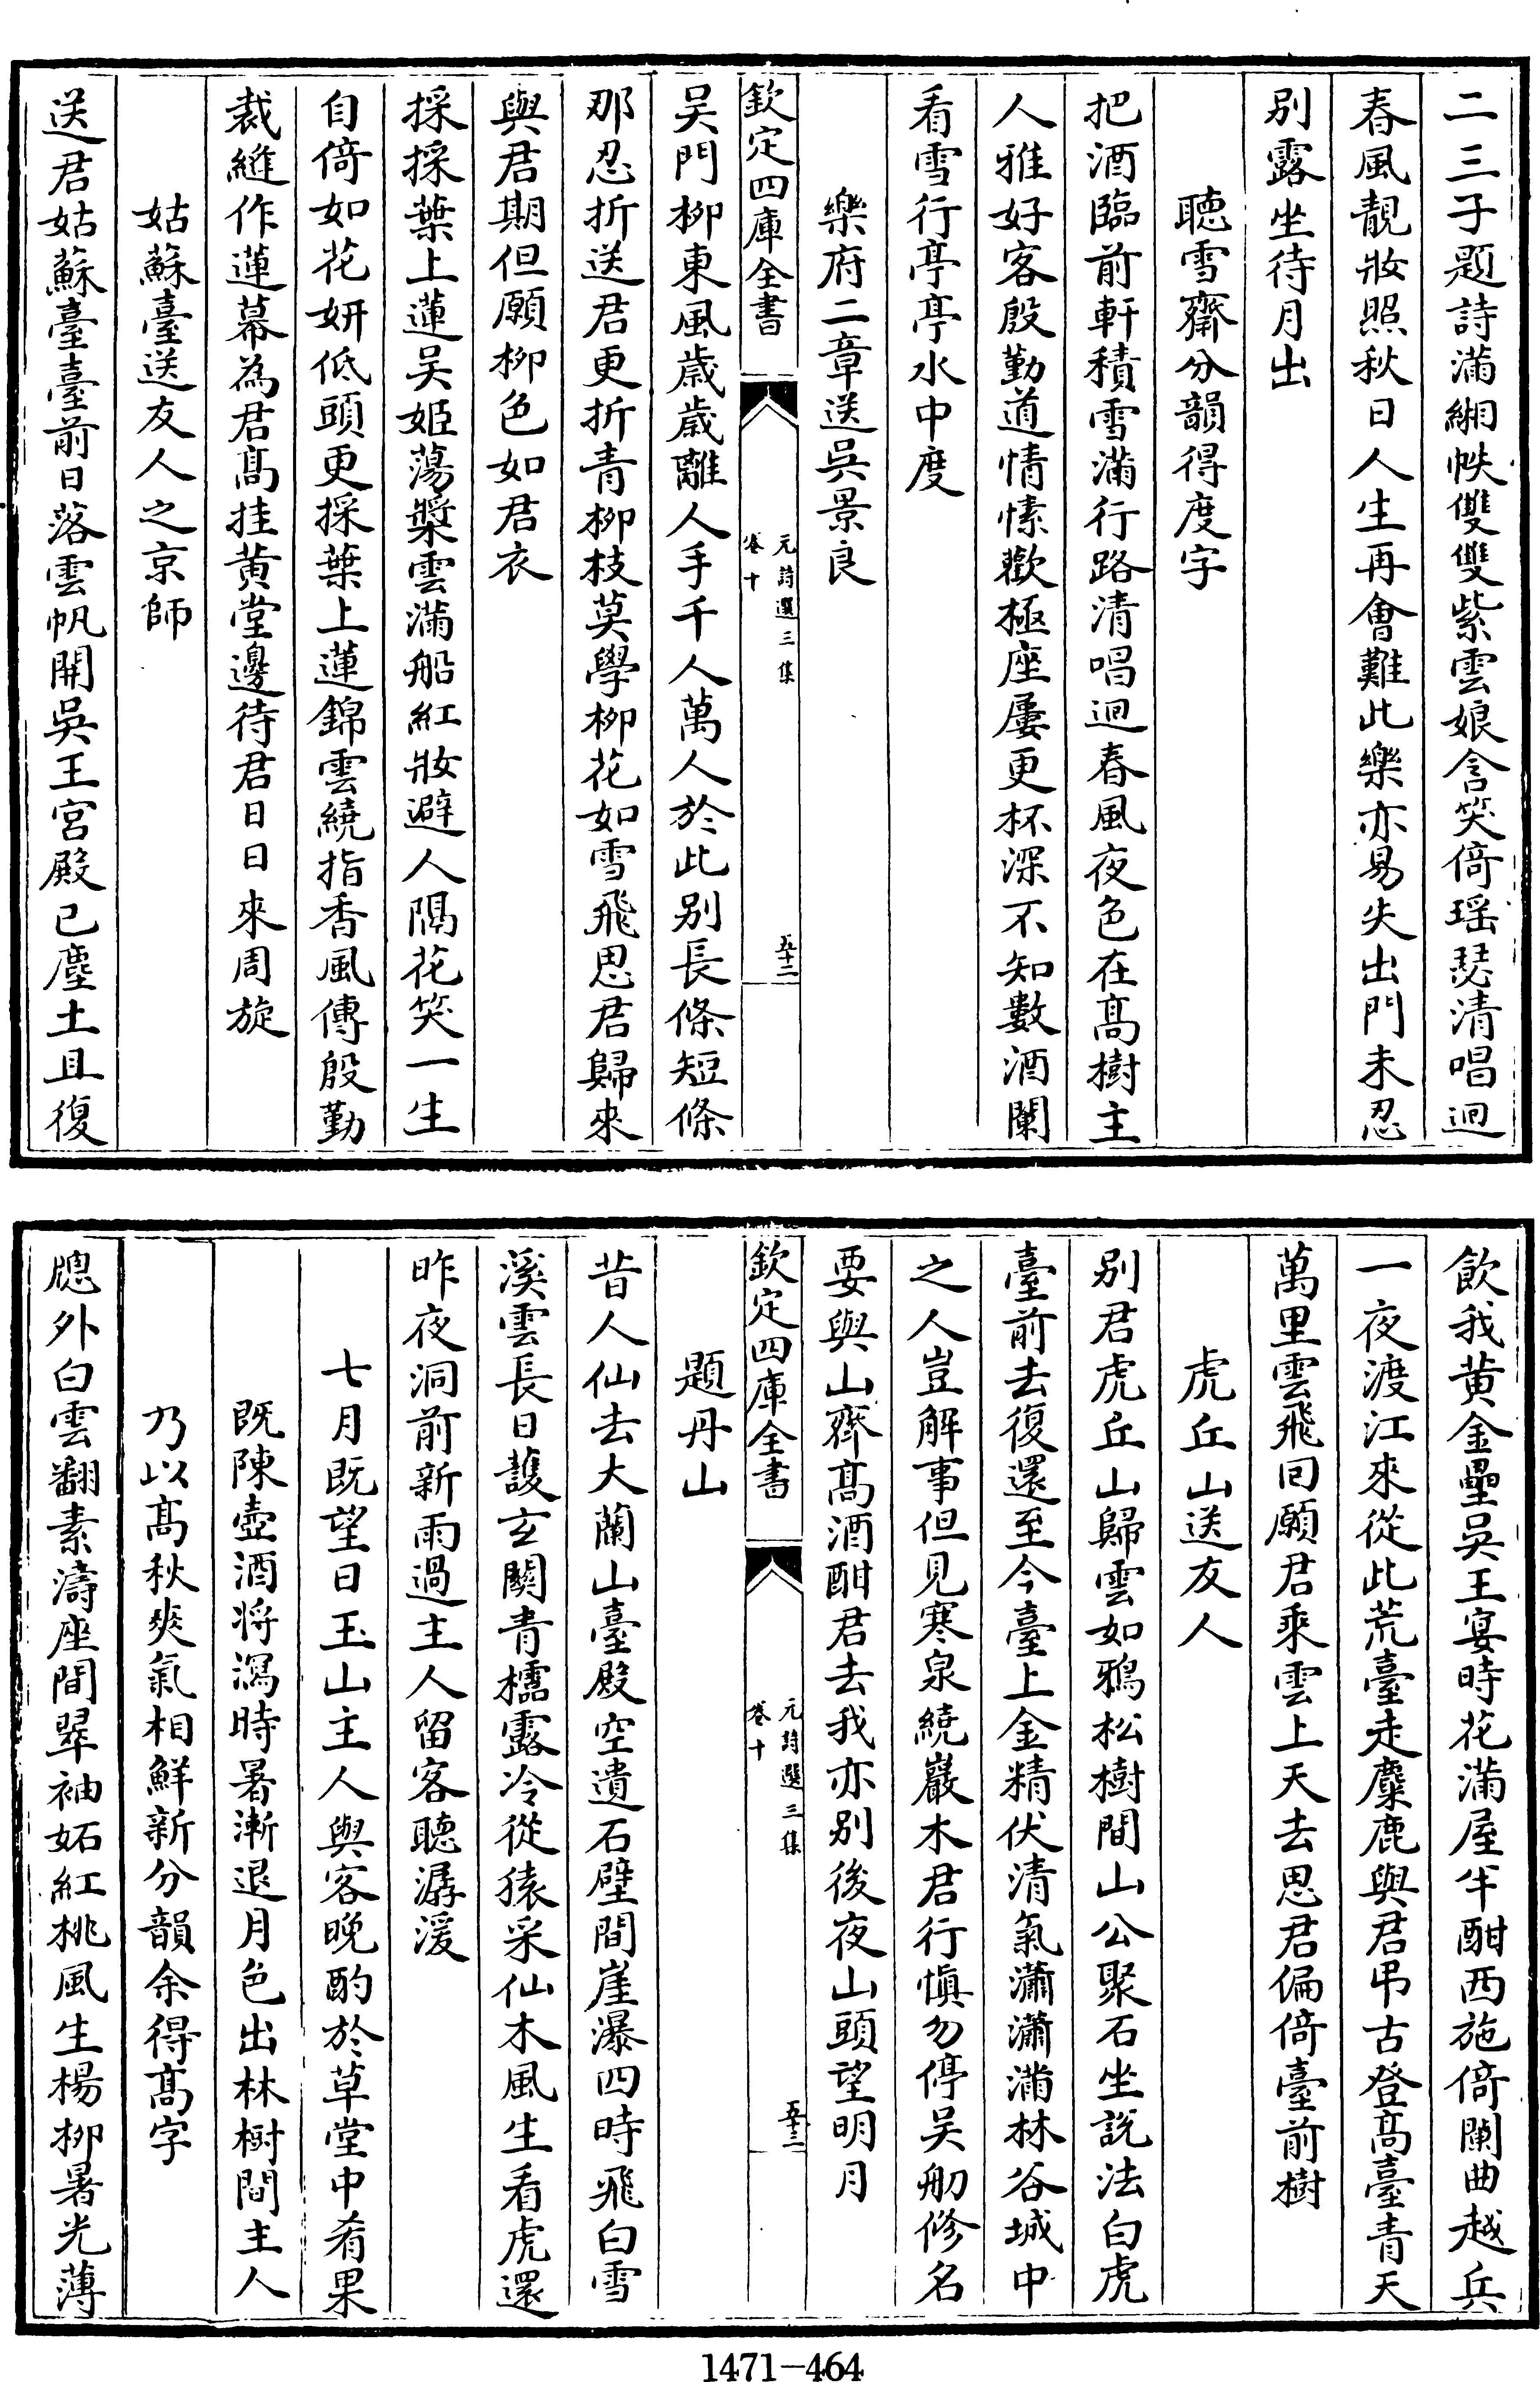 二三子題詩滿緗帙雙雙紫雲娘含笑倚瑶瑟清唱迴
春風靚妝照秋日人生再會難此樂亦易失出門未忍
别露坐待月出
聽雪齋分韻得度字
把酒臨前軒積雪滿行路清唱迴春風夜色在髙樹主
人雅好客殷勤道情愫歡極座屢更杯深不知數酒闌
看雪行亭亭水中度
樂府二章送吳景良
欽定四庫全書
元詩選三集
卷十
五十二
吴門柳東風歲歲離人手千人萬人於此别長條短條
那忍折送君更折青柳枝莫學柳花如雪飛思君歸來
與君期但願柳色如君衣
採採葉上蓮吴姬蕩槳雲滿船紅妝避人隔花笑一生
自倚如花妍低頭更採葉上蓮錦雲繞指香風傳殷勤
裁縫作蓮幕為君髙挂黄堂邊待君日日來周旋
姑蘇臺送友人之京師
送君姑蘇臺臺前日落雲帆開吳王宮殿已塵土且復
飲我黄金罍吳王宴時花滿屋半酣西施倚闌曲越兵
一夜渡江來從此荒臺走麋鹿與君弔古登髙臺青天
萬里雲飛回願君乘雲上天去思君偏倚臺前樹
虎丘山送友人
别君虎丘山歸雲如鴉松樹間山公聚石坐說法白虎
臺前去復還至今臺上金精伏清氣瀟瀟滿林谷城中
之人豈解事但見寒泉繞巖木君行慎勿停吴舠修名
要與山齊髙酒酣君去我亦别後夜山頭望明月
欽定四庫全書
元詩選三集
卷十
五十三
題丹山
昔人仙去大蘭山臺殿空遺石壁間崖瀑四時飛白雪
溪雲長日護玄關青櫺露冷從猿采仙木風生看虎還
昨夜洞前新雨過主人留客聽潺湲
七月既望日玉山主人與客晚酌於草堂中肴果
既陳壺酒将瀉時暑漸退月色出林樹間主人
乃以髙秋爽氣相鮮新分韻余得髙字
牕外白雲翻素濤座間翠袖妬紅桃風生楊柳暑光薄
1471-464